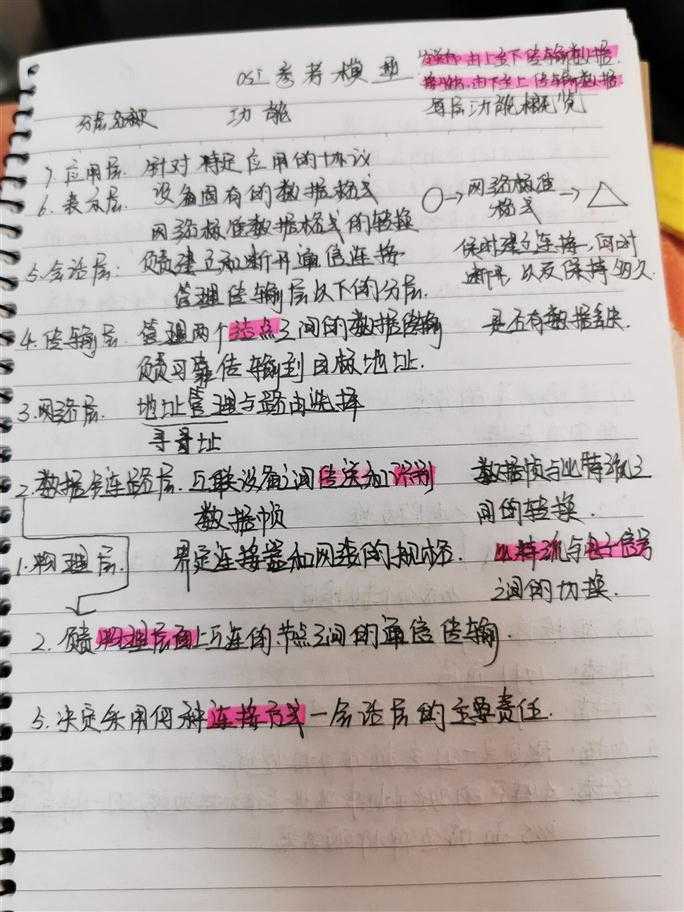 OSI 参考模型
发送方:由上至下传输数据.
接收方:由下至上传输数据
分层名称 功能 每层功能概览
7.应用层. 针对特定应用的协议
6.表示层. 设备固有的数据格式
网络标准数据格式的转换
○→网络标准格式→△
5.会话层: 负责建立和断开通信连接.
管理传输层以下的分层.
何时建立连接,何时
断开以及保持多久
4.传输层. 管理两个结点之间的数据传输
负责可靠传输到目标地址.
是否有数据丢失.
3.网络层. 地址管理与路由选择
寻址
2.数据链路层. 互联设备之间传送和识别
数据帧
数据帧与比特流之
间的转换.
1.物理层. 界定连接器和网线的规格.
比特流与电子信号
之间的切换.
2.负责物理层面上互连的节点之间的通信传输.
5.决定采用何种连接方式—会话层的主要责任.